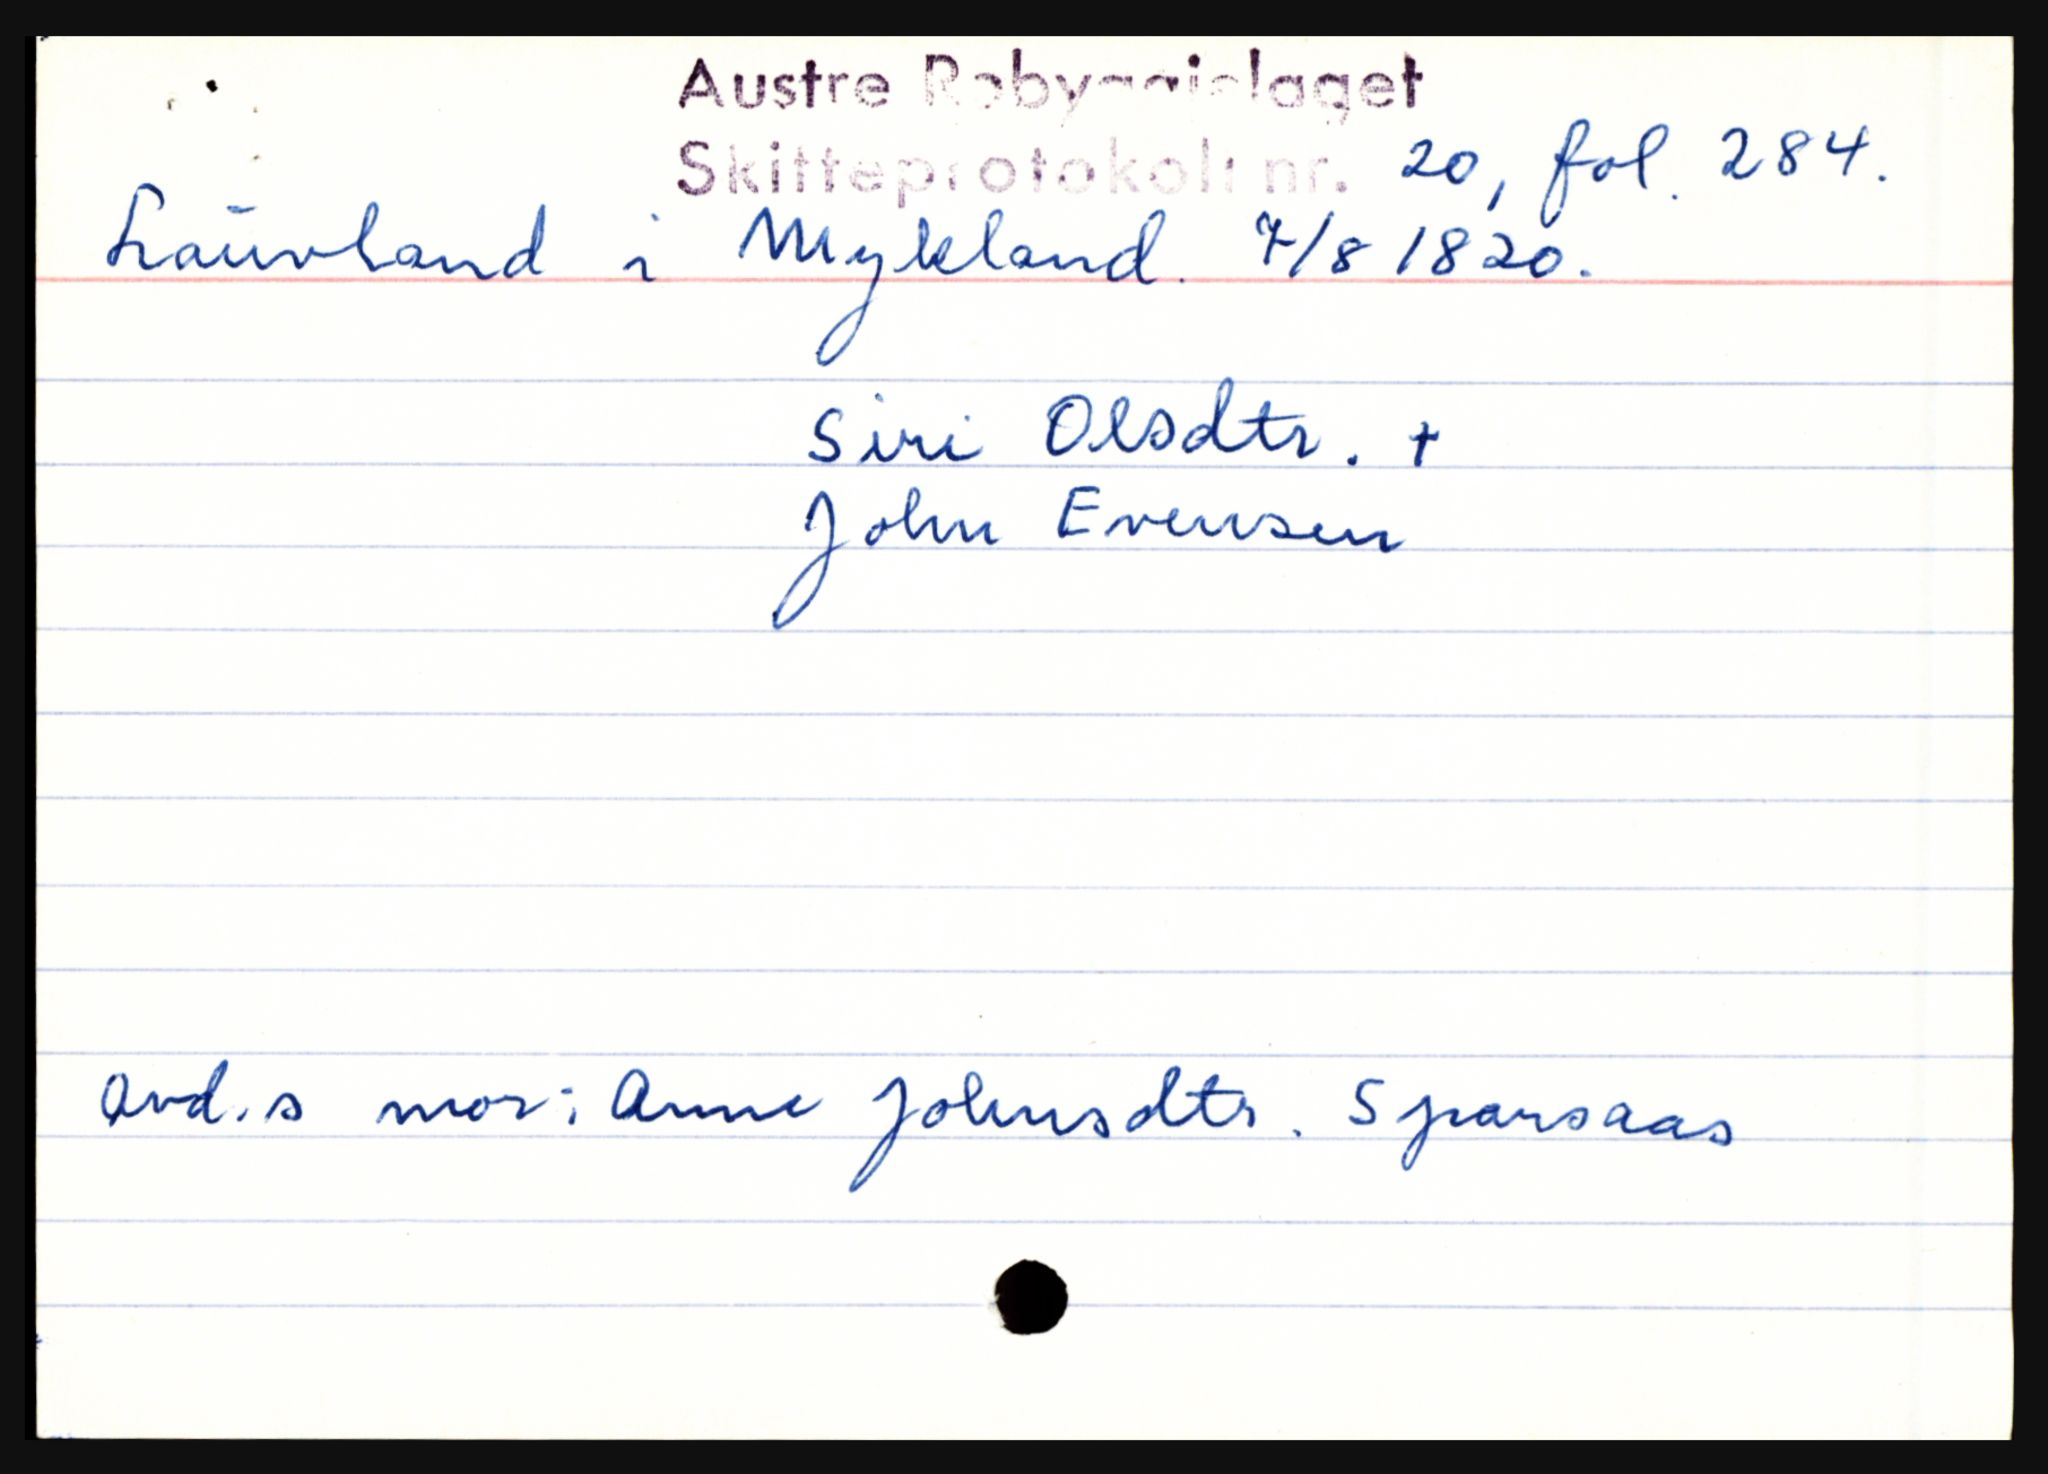 Austre Robyggjelaget
Skifteprotokoll nr. 20, fol. 284.
Lauvland i Mykland. 7/8 1820.
Siri Olsdtr. +
John Evensen
Avd.s mor: Anne Johnsdtr. Sparsaas